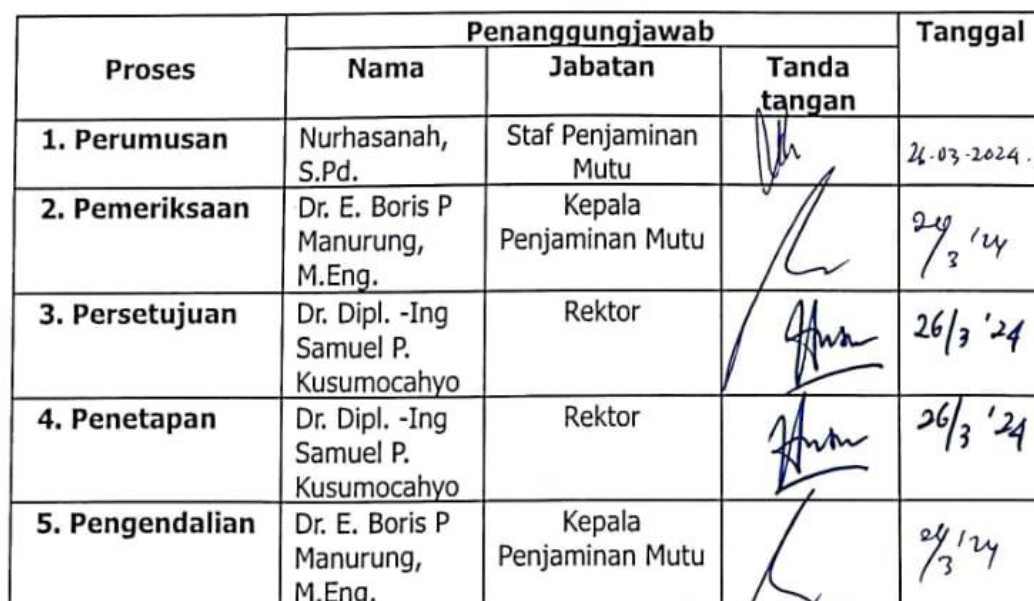 Penanggungjawab
Tanggal
Proses
Nama
Jabatan
Tanda
tangan
1. Perumusan
Nurhasanah,
S.Pd.
Staf Penjaminan
Mutu
26.03.2024.
2. Pemeriksaan
Dr. E. Boris P
Manurung,
M.Eng.
Kepala
Penjaminan Mutu
3. Persetujuan
Dr. Dipl. -Ing
Samuel P.
Kusumocahyo
Rektor
26/3 '24
4. Penetapan
Dr. Dipl. -Ing
Samuel P.
Kusumocahyo
Rektor
26/3 '24
5. Pengendalian
Dr. E. Boris P
Manurung,
M.Eng.
Kepala
Penjaminan Mutu